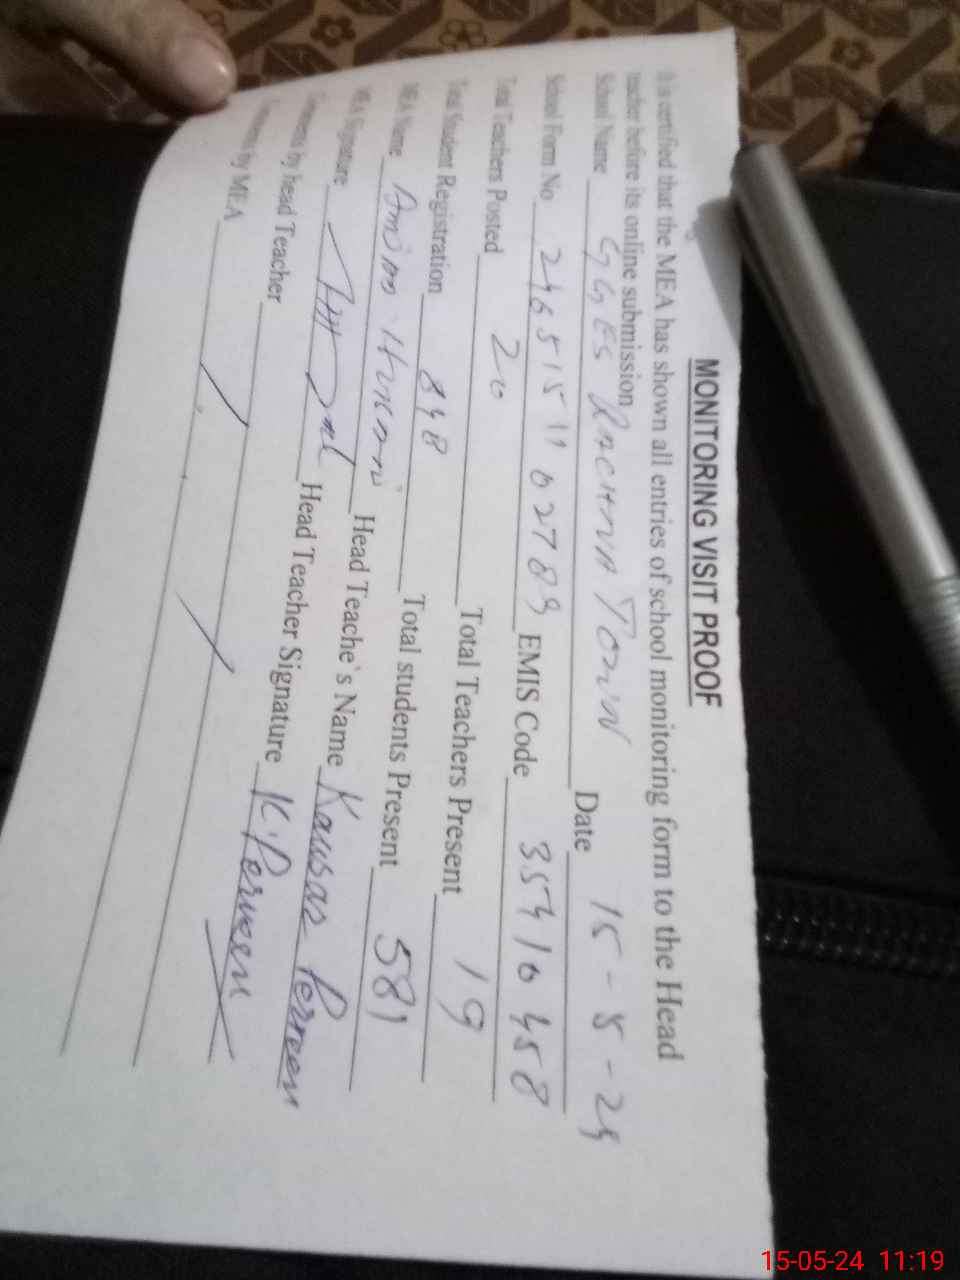 MONITORING VISIT PROOF
It is certified that the MEA has shown all entries of school monitoring form to the Head
teacher before its online submission
School Name GGES Rachna Town Date 15-5-24
School Form No EMIS Code 35410458
Total Teachers Posted 20 Total Teachers Present 19
Total Student Registration 848 Total students Present 581
MEA Name Head Teache's Name Kausar Perveen
MEA Signature Head Teacher Signature K.Perveen
Comments by head Teacher
Comments by MEA
15-05-24 11:19